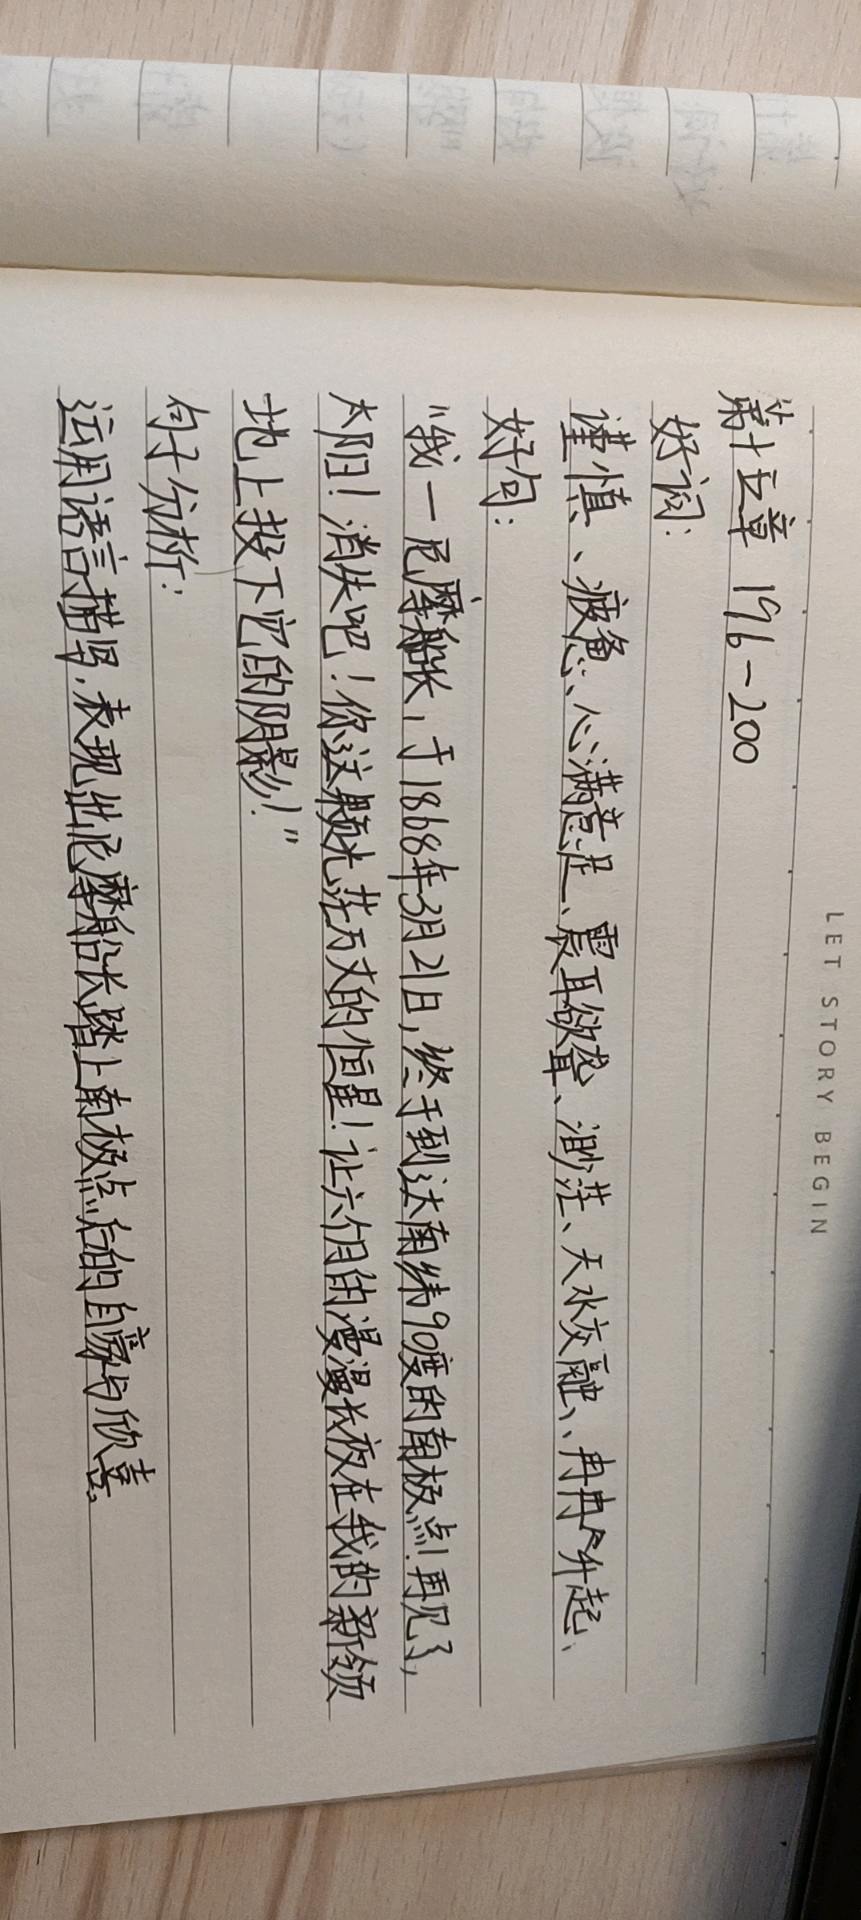 LET STORY BEGIN
第十五章 196-200
好词：
谨慎、疲惫、心满意足、震耳欲聋、渺茫、天水交融、冉冉升起、
好句：
“我一尼摩船长，于1868年3月21日，终于到达南纬90度的南极点！再见了，
太阳！消失吧！你这颗光芒万丈的恒星！让六个月的漫漫长夜在我的新领
地上投下它的阴影！”
句子分析：
运用语言描写，表现出尼摩船长踏上南极点后的自豪与欣喜。